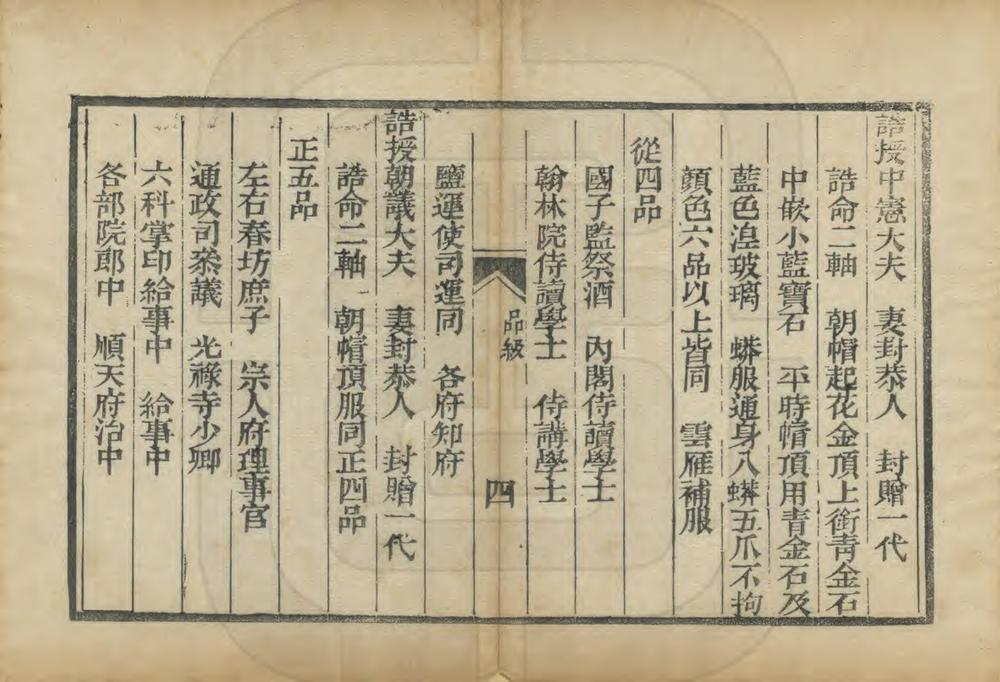 誥授中憲大夫　妻封恭人　封贈一代
誥命二軸　朝帽起花金頂上銜靑金石
中嵌小藍寶石　平時帽頂用青金石及
藍色湼玻璃　蟒服通身八蟒五爪不拘
顏色六品以上皆同　雲雁補服
從四品
國子監祭酒　內閣侍讀學士
翰林院侍讀學士　侍講學士
品級　四
鹽運使司運同　各府知府
誥授朝議大夫　妻封恭人　封贈一代
誥命二軸　朝帽頂服同正四品
正五品
左右春坊庶子　宗人府理事官
通政司叅議　光祿寺少卿
六科掌印給事中　給事中
各部院郎中　順天府治中